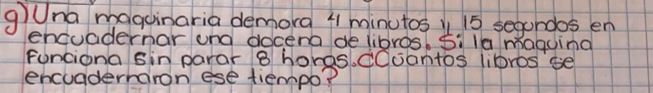 g) Una maquinaria demora 41 minutos y 15 segundos en
encuadernar una docena de libros. Si la maquina
funciona sin parar 8 horas. ¿Cuantos libros se
encuadernaron ese tiempo?